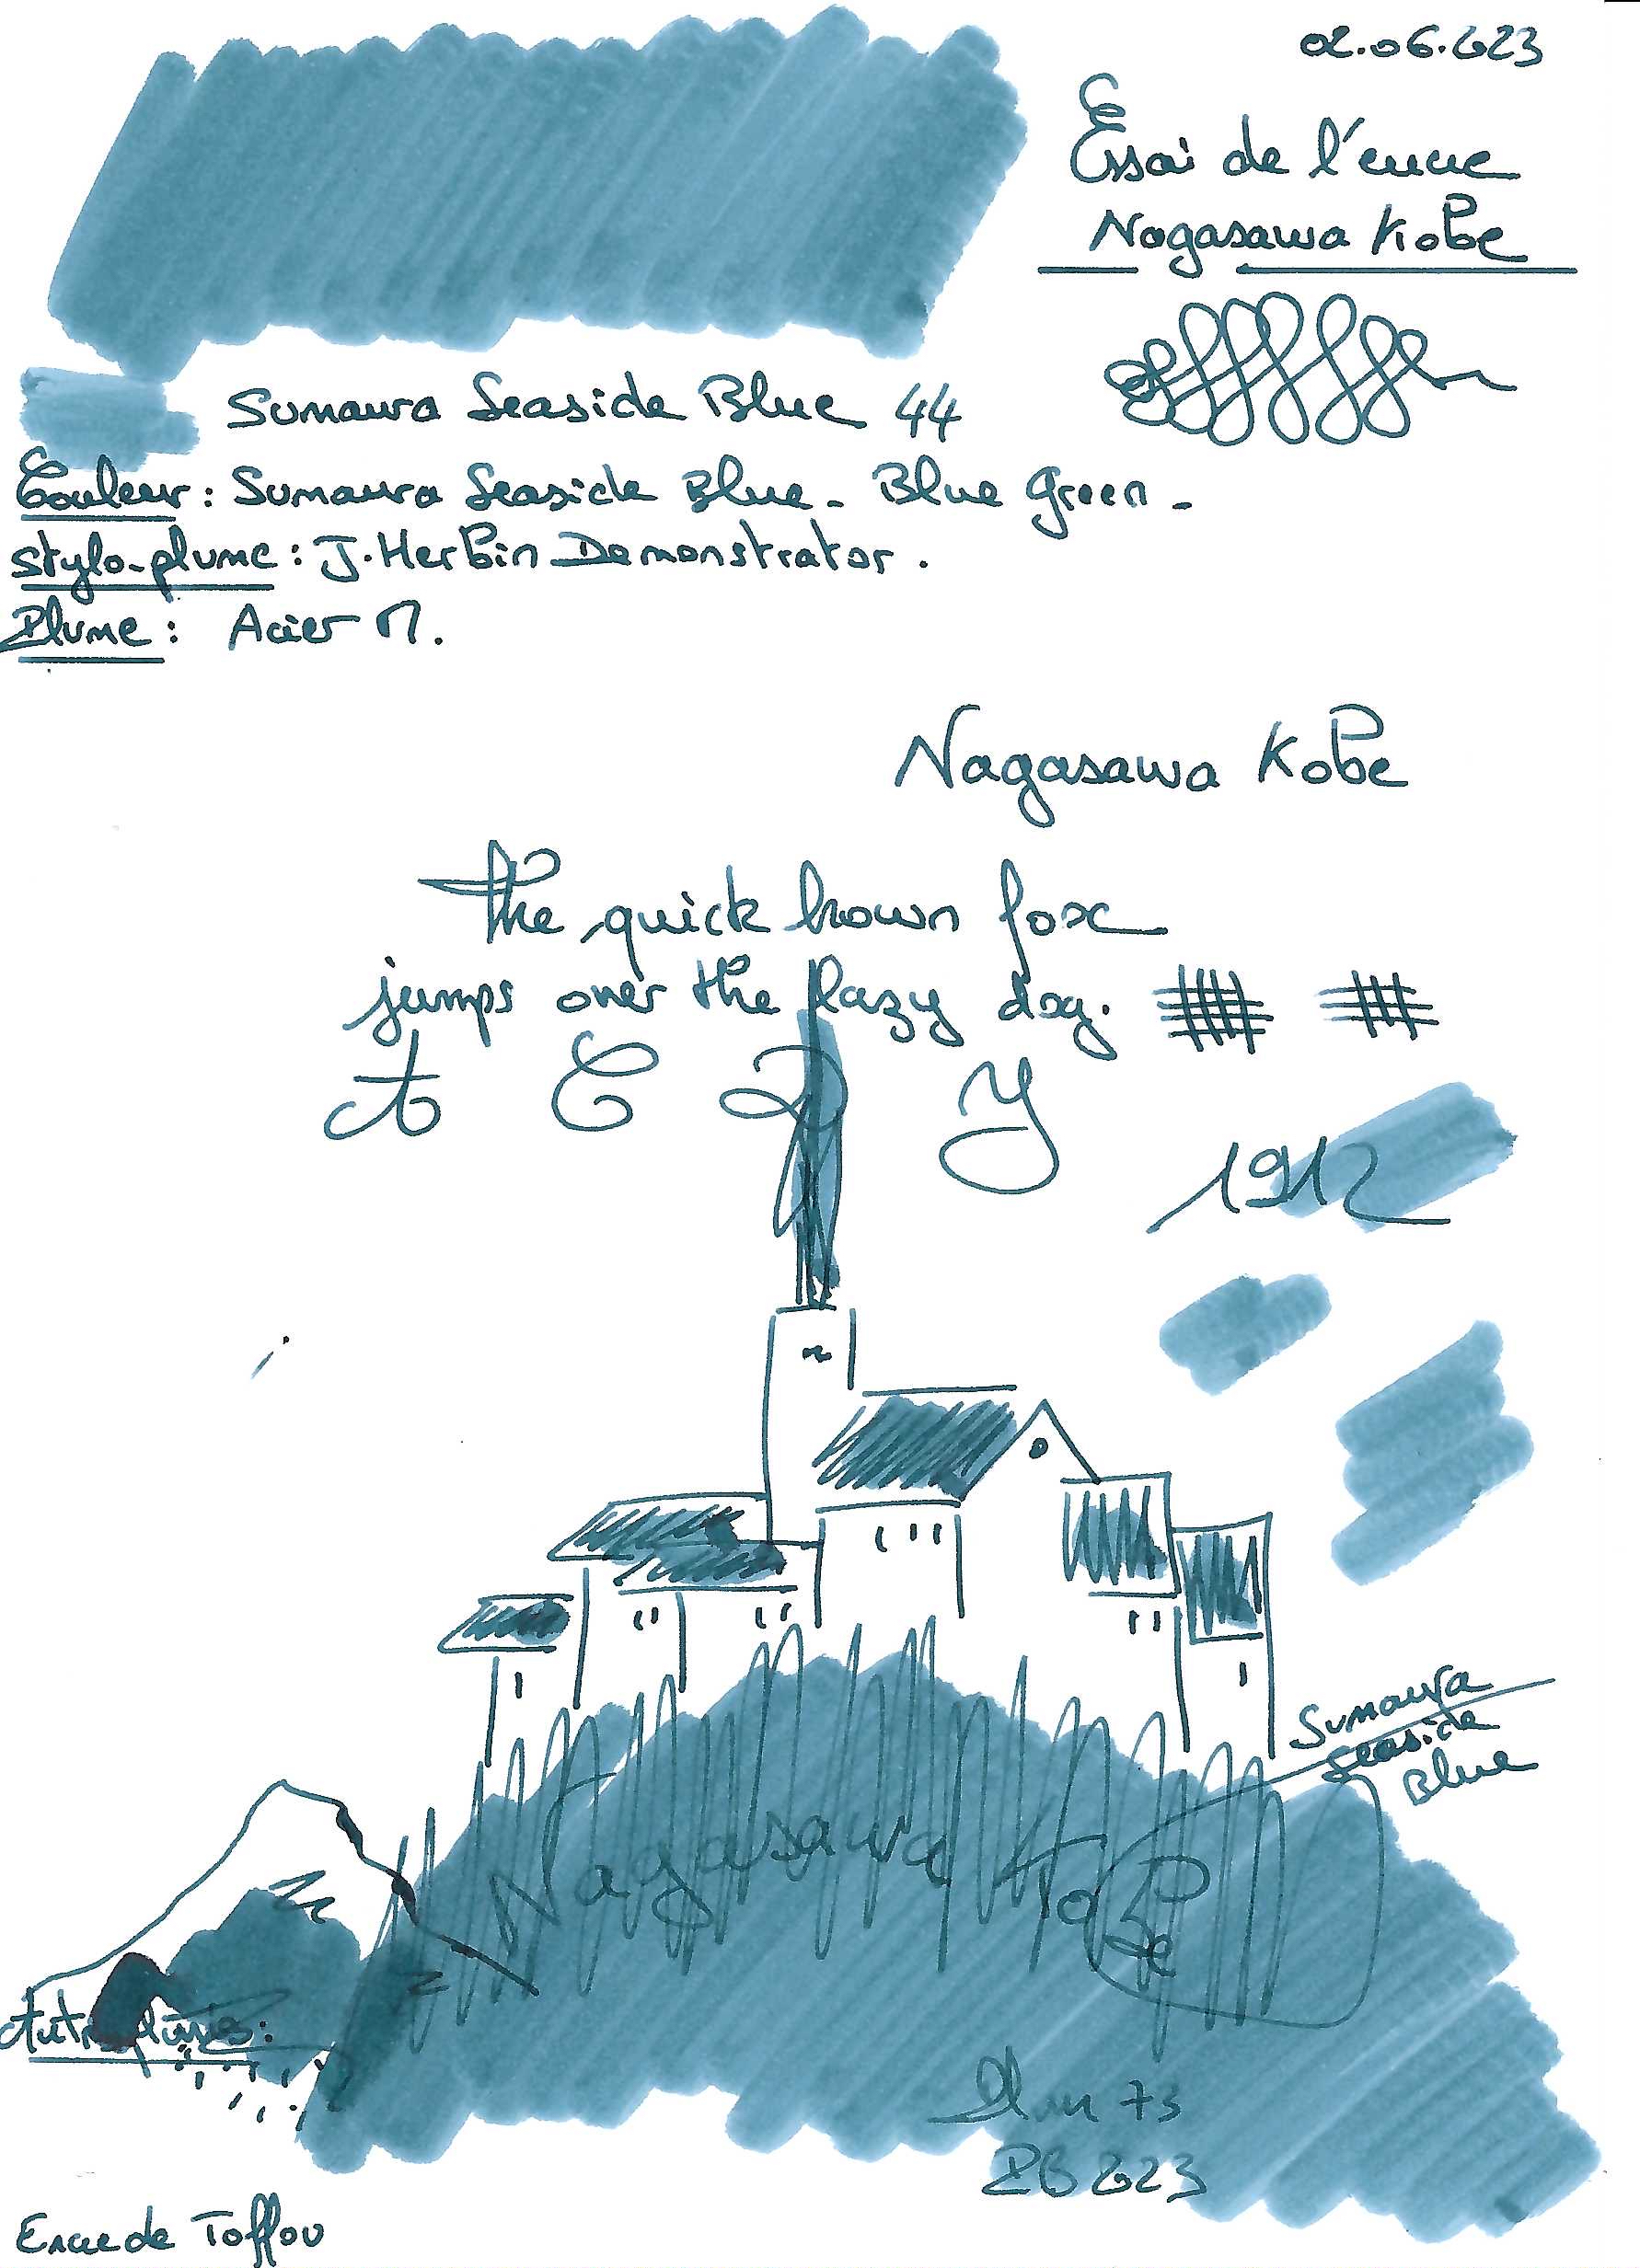 02.06.2023
Essai de l'encre
Nagasawa Kobe
Sumaura Seaside Blue 44
Couleur : Sumaura Seaside Blue - Blue Green -
Stylo-plume : J. Herbin Demonstrator .
Plume : Acier M.
Nagasawa Kobe
The quick brown fox
jumps over the lazy dog.
A E Q Y
1912
Sumaura
Seaside
Blue
Nagasawa Kobe
73
Encre de Toffou